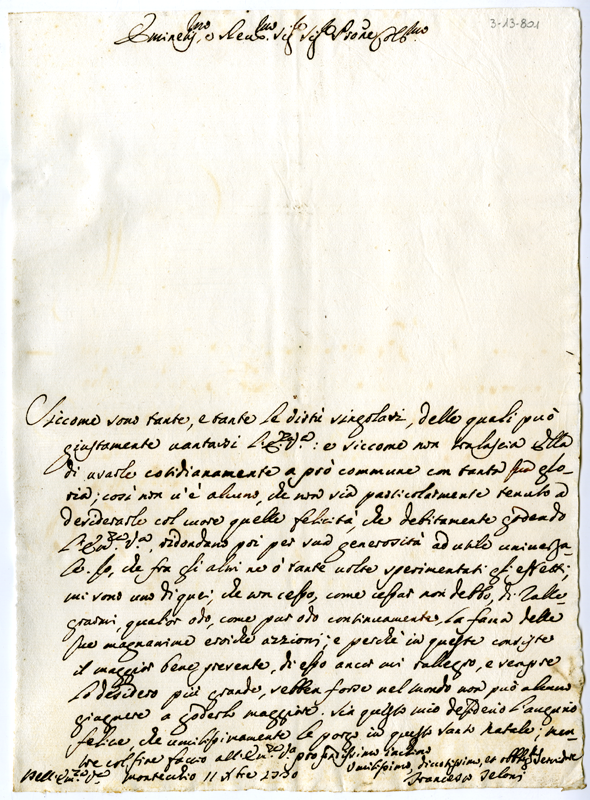 3-13-801
Eminen.mo, e Rev.mo Sig.re Sig.re Prone Col.mo
Siccome sono tante, e tante le virtù singolari, delle quali può
giustamente vantarsi l'E.V.a: e siccome non tralascia Ella
di usarle cotidianamente a prò commune con tanta sua glo-
ria; così non v'è alcuno, che non sia particolarmente tenuto a
desiderarle col cuore quelle felicità, che debitamente godendo
l'Em.za V.a, ridondano poi per sua generosità ad utile universa-
le. Io, che fra gli altri ne ò tante volte sperimentati gli effetti,
mi sono uno di quei, che non cesso, come cessar non debbo, di ralle-
grarmi, qualor odo, come pur odo continuamente, la fama delle
sue magnanime eroiche azzioni; e perchè in queste consiste
il maggior bene presente, di esso ancor mi rallegro, e sempre
lo desidero più grande, sebben forse nel mondo non può alcuno
giugnere a goderlo maggiore. Sia questo mio desiderio l'augurio
felice, che umilissimamente le porgo in questo Santo Natale; men-
tre col fine faccio all'Em.za V.a profondissimo inchino
Dell'Em.za V.a Montecchio 11 Xbre 1730
Umilissimo, divotissimo, et obblig.mo Servidore
Francesco